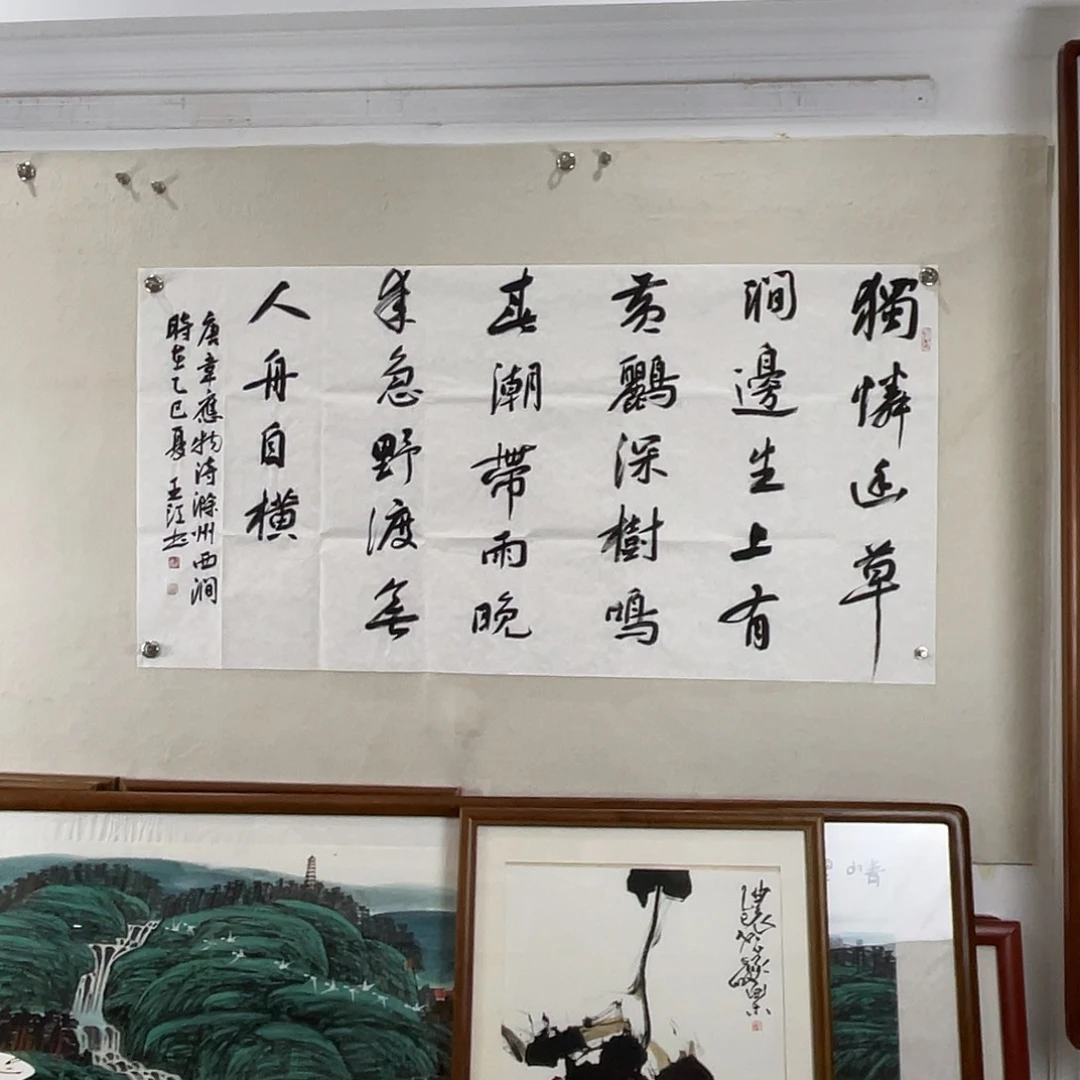 獨憐幽草
澗邊生上有
黄鸝深樹鳴
春潮帶雨晚
來急野渡無
人舟自橫
唐韋應物詩滁州西澗
時在乙巳夏 王江